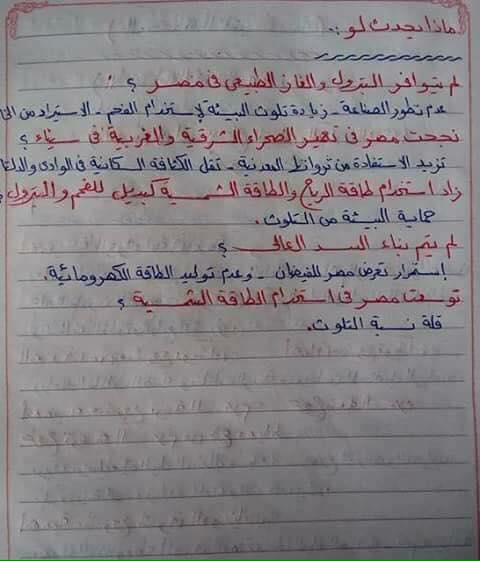 ماذا يحدث لو :.
لم يتوافر البترول والغاز الطبيعى فى مصر ؟
عدم تطور الصناعة - زيادة تلوث البيئة لإستخدام الفحم - الاستيراد من
نجحت مصر فى تعمير الصحراء الشرقية والغربية فى سيناء ؟
تزيد الاستفادة من ثرواتها المعدنية - تقل الكثافة السكانية فى الوادى والدلتا
زاد استخدام طاقة الرياح والطاقة الشمسية كبديل للفحم والبترول ؟
حماية البيئة من التلوث .
لم يتم بناء السد العالى ؟
إستمرار تعرض مصر للفيضان - وعدم توليد الطاقة الكهرومائية.
توسعت مصر فى استخدام الطاقة الشمسية ؟
قلة نسبة التلوث.